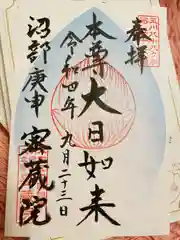 奉拝
本尊大日如来
令和四年九月二十三日
沼部庚申
密蔵院